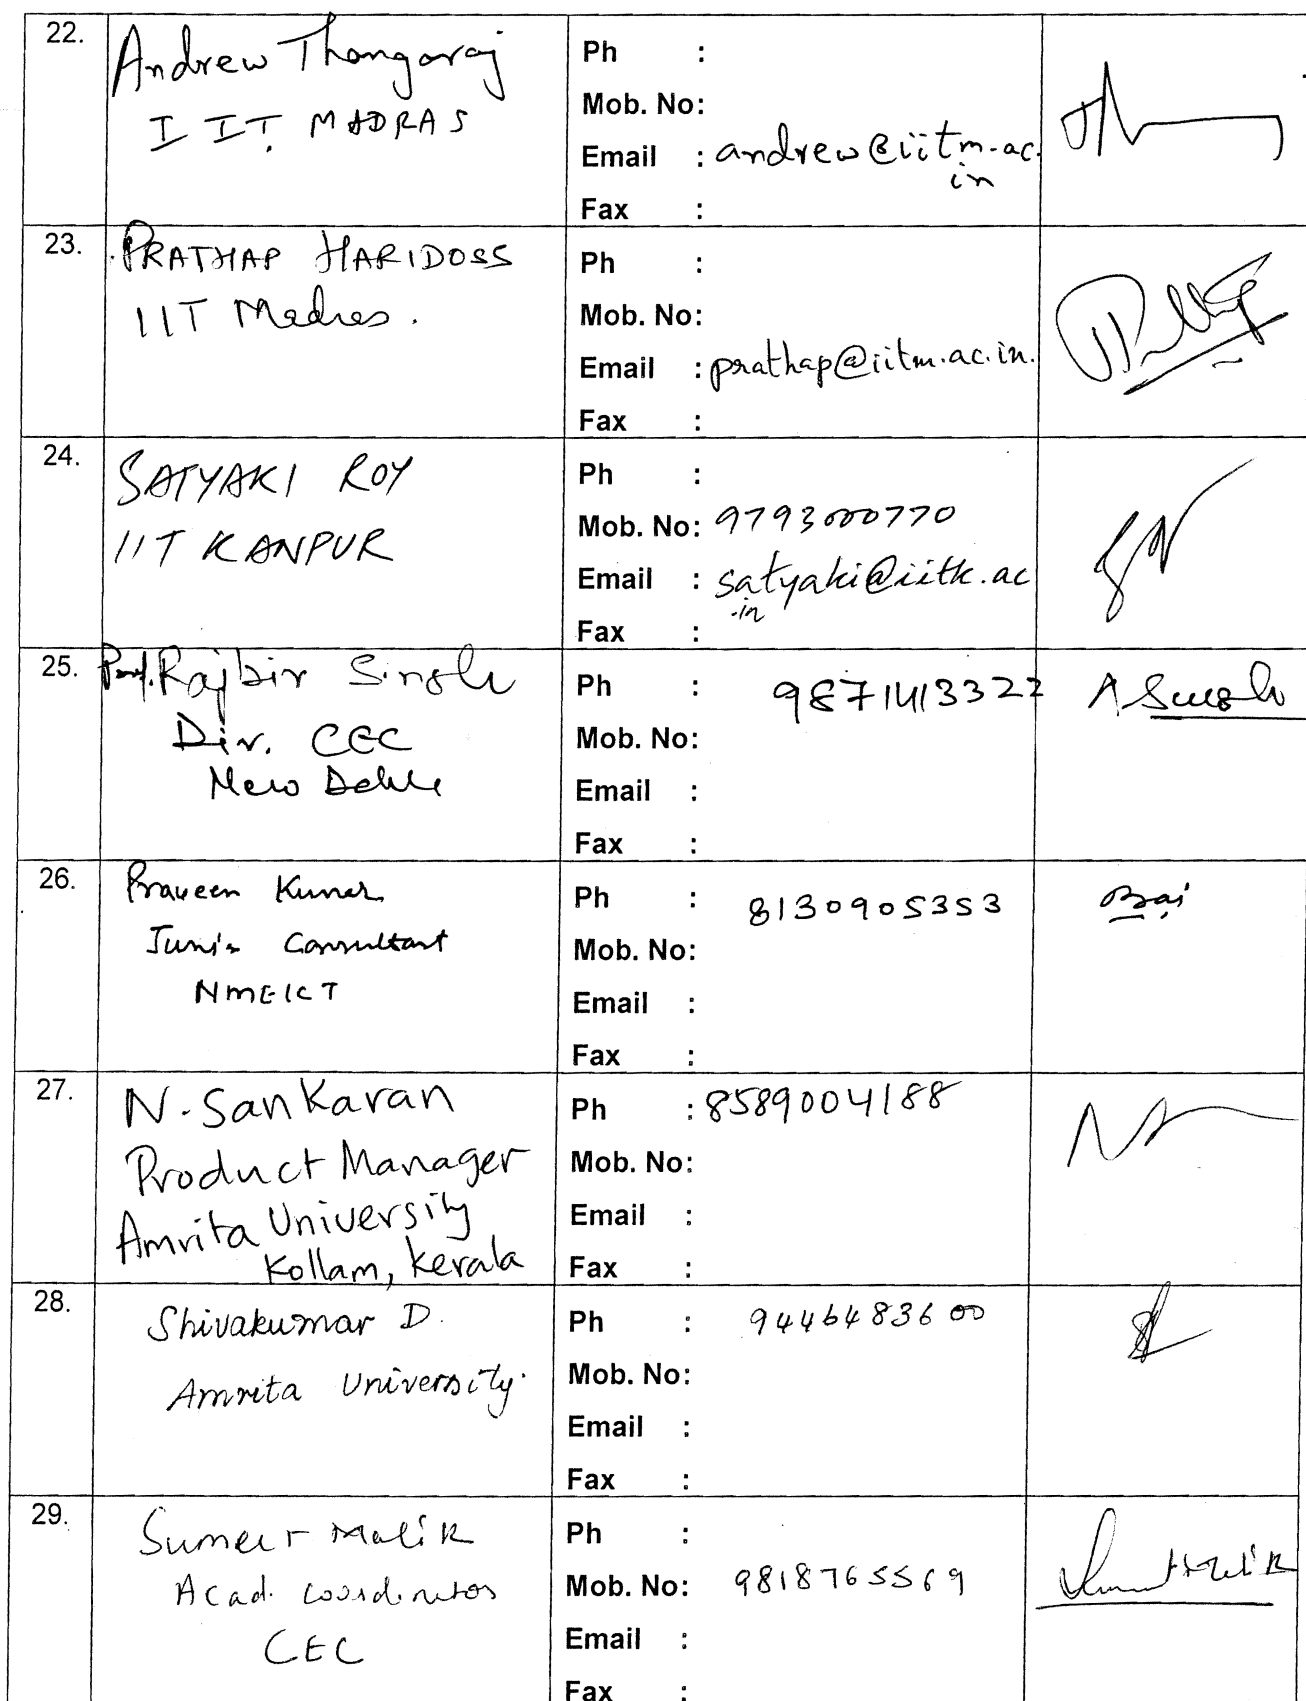 22.
Andrew Thangaraj
IIT, MADRAS
Ph :
Mob. No:
Email : andrew@iitm.ac.
in
Fax :
23.
PRATHAP HARIDOSS
IIT Madras.
Ph :
Mob. No:
Email : prathap@iitm.ac.in.
Fax :
24.
SATYAKI ROY
IIT KANPUR
Ph :
Mob. No: 9793000770
Email : satyaki@iitk.ac
.in
Fax :
25.
Prof. Rajbir Singh
Dir. CEC
New Delhi
Ph : 9871413322
Mob. No:
Email :
Fax :
26.
Praveen Kumar
Junior Consultant
NMEICT
Ph : 8130905353
Mob. No:
Email :
Fax :
27.
N. Sankaran
Product Manager
Amrita University
Kollam, Kerala
Ph : 8589004188
Mob. No:
Email :
Fax :
28.
Shivakumar D.
Amrita University.
Ph : 9446483600
Mob. No:
Email :
Fax :
29.
Sumeet Malik
Acad. Coordinator
CEC
Ph :
Mob. No: 9818765569
Email :
Fax :